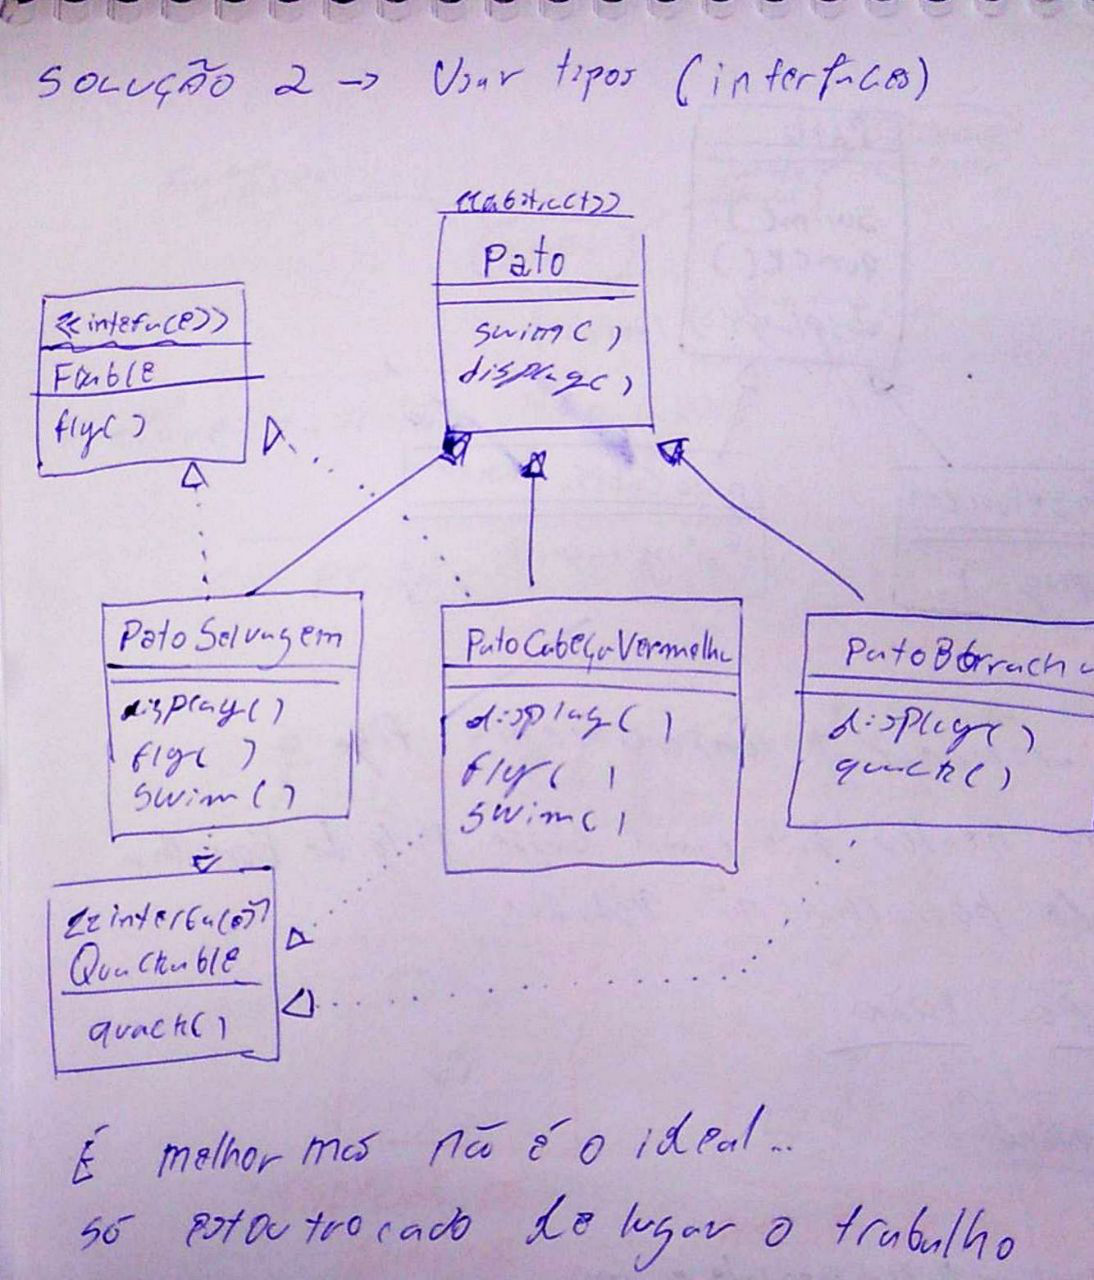 SOLUÇÃO 2 → Usar tipos (interfaces)
<<abstract>>
Pato
swim()
display()
<<inteface>>
Flyable
fly()
PatoSelvagem
display()
fly()
swim()
PatoCabeçaVermelha
display()
fly()
swim()
PatoBorracha
display()
quack()
<<interfaces>>
Quackable
quack()
É melhor mas não é o ideal...
só estou trocado de lugar o trabalho